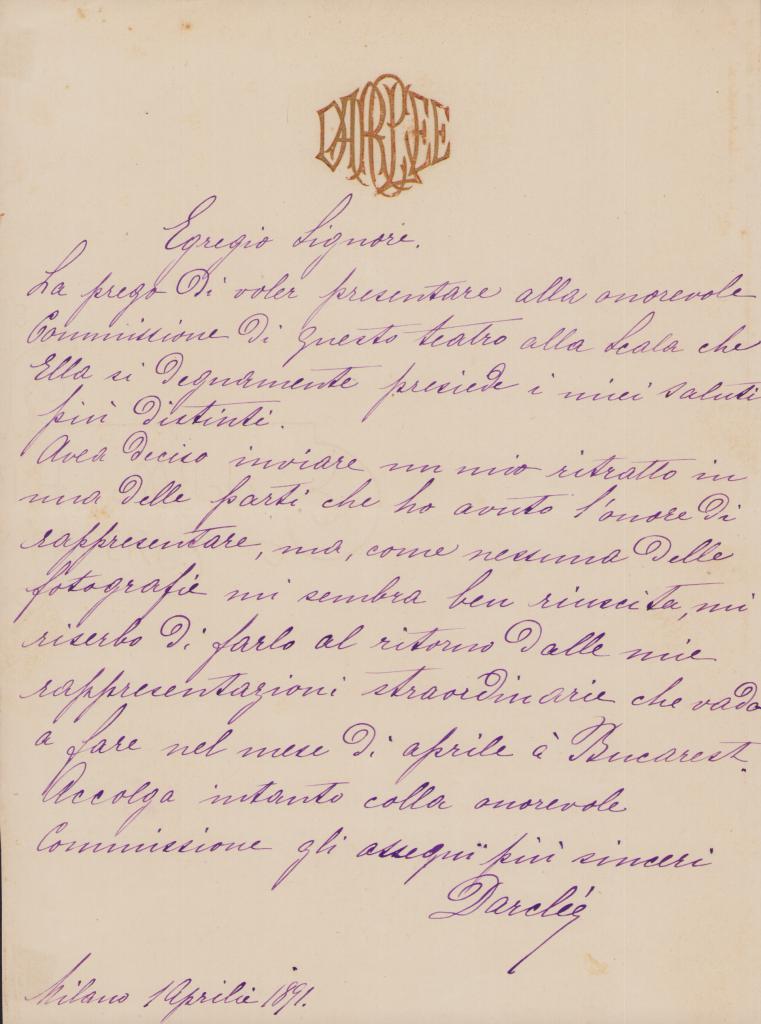 DARCLEE
Egregio Signore.
La prego di voler presentare alla onorevole
Commissione di questo teatro alla Scala che
Ella si degnamente presiede i miei saluti
più distinti.
Avea deciso inviare un mio ritratto in
una delle parti che ho avuto l'onore di
rappresentare, ma, come nessuna delle
fotografie mi sembra ben riuscita, mi
riserbo di farlo al ritorno dalle mie
rappresentazioni straordinarie che vado
a fare nel mese di aprile à Bucarest.
Accolga intanto colla onorevole
Commissione gli ossequi più sinceri
Darclée
Milano 1 Aprilie 1891.